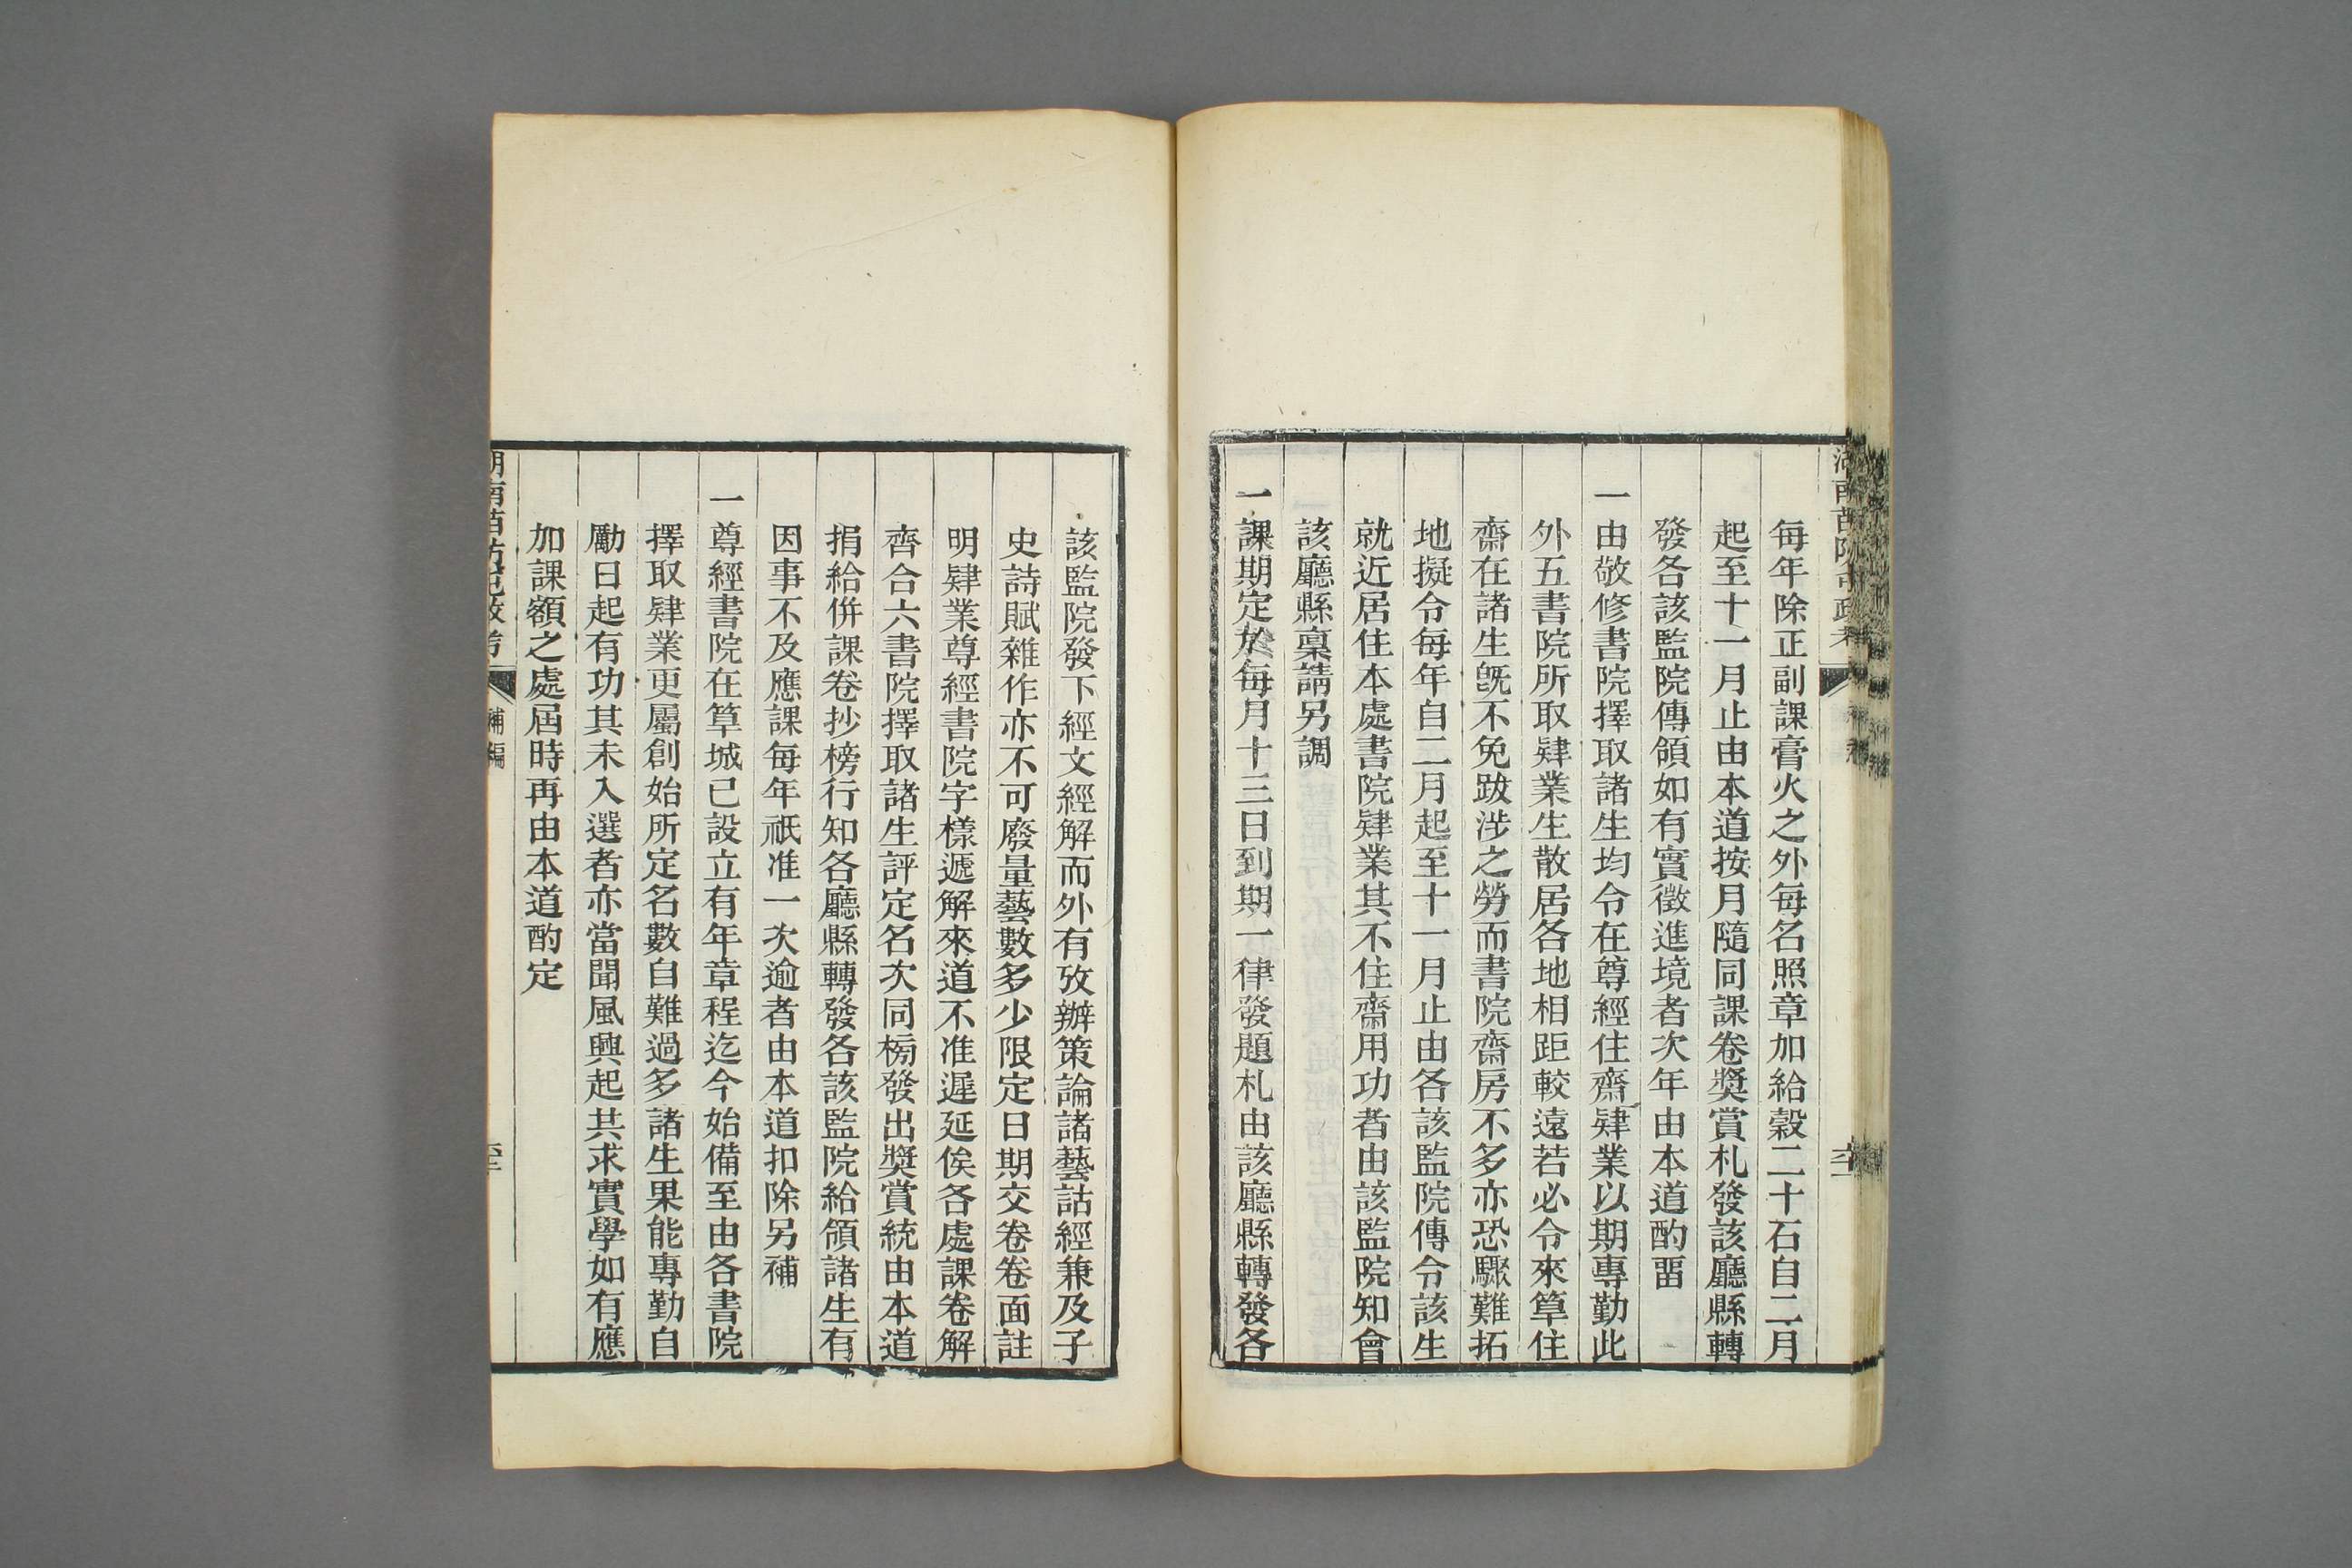 每年除正副課膏火之外每名照章加給穀二十石自二月
起至十一月止由本道按月隨同課卷獎賞札發該廳縣轉
發各該監院傳領如有實徵進境者次年由本道酌畱
一由敬修書院擇取諸生均令在尊經住齋肄業以期專勤此
外五書院所取肄業生散居各地相距較遠若必令來筸住
齋在諸生旣不免跋涉之勞而書院齋房不多亦恐驟難拓
地擬令每年自二月起至十一月止由各該監院傳令該生
就近居住本處書院肄業其不住齋用功者由該監院知會
該廳縣稟請另調
一課期定於每月十三日到期一律發題札由該廳縣轉發各
該監院發下經文經解而外有攷辦策論諸藝詁經兼及子
史詩賦雜作亦不可廢量藝數多少限定日期交卷卷面註
明肄業尊經書院字樣遞解來道不准遲延俟各處課卷解
齊合六書院擇取諸生評定名次同榜發出獎賞統由本道
捐給併課卷抄榜行知各廳縣轉發各該監院給領諸生有
因事不及應課每年祇准一次逾者由本道扣除另補
一尊經書院在筸城已設立有年章程迄今始備至由各書院
擇取肄業更屬創始所定名數自難過多諸生果能專勤自
勵日起有功其未入選者亦當聞風興起共求實學如有應
加課額之處屆時再由本道酌定
補編